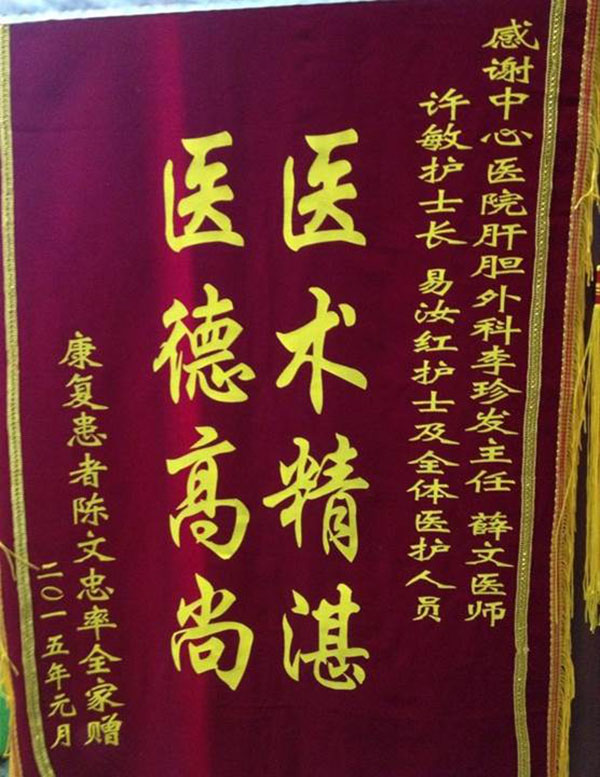 感谢中心医院肝胆外科李珍发主任 薛文医师
许敏护士长 易汝红护士及全体医护人员
医术精湛
医德高尚
康复患者陈文忠率全家赠
二〇一五年元月